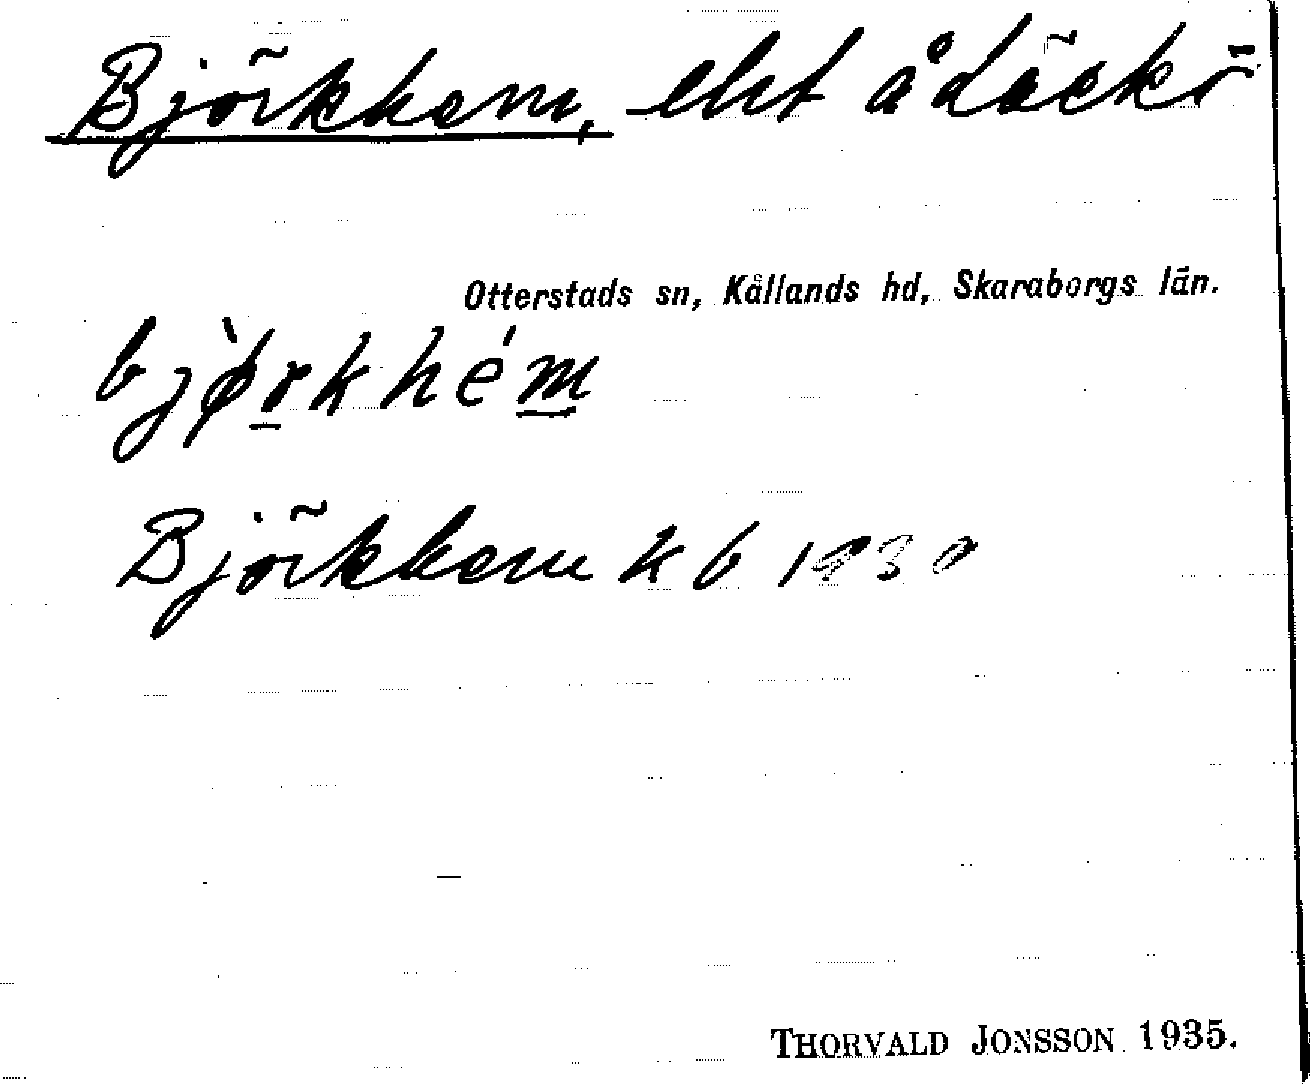 Björkhem, lht å Läckö
Otterstads sn, Kållands hd, Skaraborgs län.
bjø̀rkhém
Björkhem kb 1930
THORVALD JONSSON 1935.